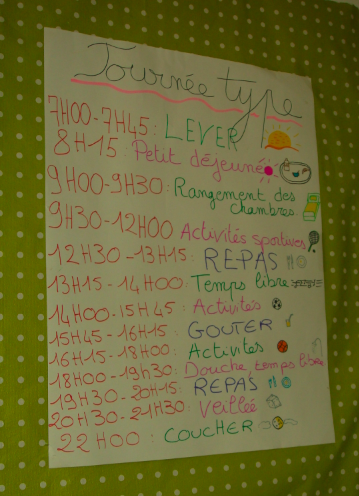 Journée type
7H00-7H45: LEVER
8H15: Petit déjeuné
9H00-9H30: Rangement des
chambres
9H30-12H00 Activités sportives
12H30-13H15: REPAS
13H15-14H00: Temps libre
14H00-15H45: Activités
15H45-16H15: GOUTER
16H15-18H00: Activités
18H00-19h30: Douche, temps libre
19H30-20H15: REPAS
20H30-21H30: Veillée
22H00: COUCHER